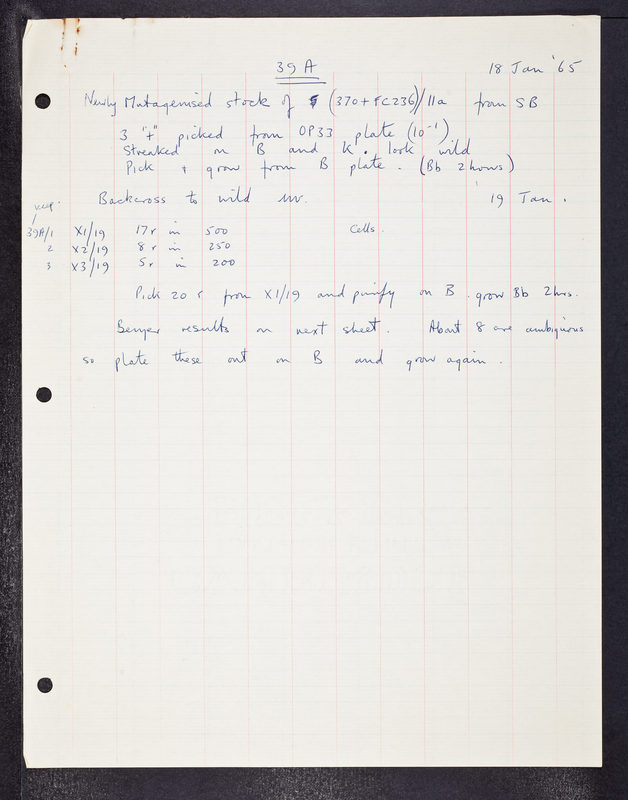 39A
18 Jan '65
Newly Mutagenised stock of (370 + FC236)/11a from SB
3 "+" picked from OP33 plate (10⁻¹)
Streaked on B and K. look wild
Pick + grow from B plate. (Bb 2 hours)
Backcross to wild uv. 19 Jan.
39A/1 X1/19 17 r in 500 Cells.
2 X2/19 8 r in 250
3 X3/19 5 r in 200
Pick 20 r from X1/19 and purify on B. grow Bb 2hrs.
Benzer results on next sheet. About 8 are ambiguous
so plate these out on B and grow again.